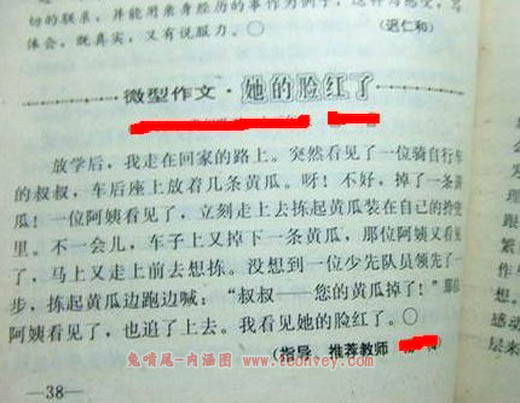 切的联系，并能用亲身经历的事作为例子，这样
体会。既真实，又有说服力。○
（迟仁和）
微型作文·她的脸红了
放学后，我走在回家的路上。突然看见了一位骑自行车
的叔叔，车后座上放着几条黄瓜。呀！不好，掉了一条黄
瓜！一位阿姨看见了，立刻走上去拣起黄瓜装在自己的挎包
里。不一会儿，车子上又掉下一条黄瓜，那位阿姨又看见
了，马上又走上前去想拣。没想到一位少先队员领先了一
步，拣起黄瓜边跑边喊：“叔叔——您的黄瓜掉了！”那位
阿姨看见了，也追了上去。我看见她的脸红了。○
（指导、推荐教师
兔啃尾-内涵图 www.tconvey.com
—38—
想。
感动
层来